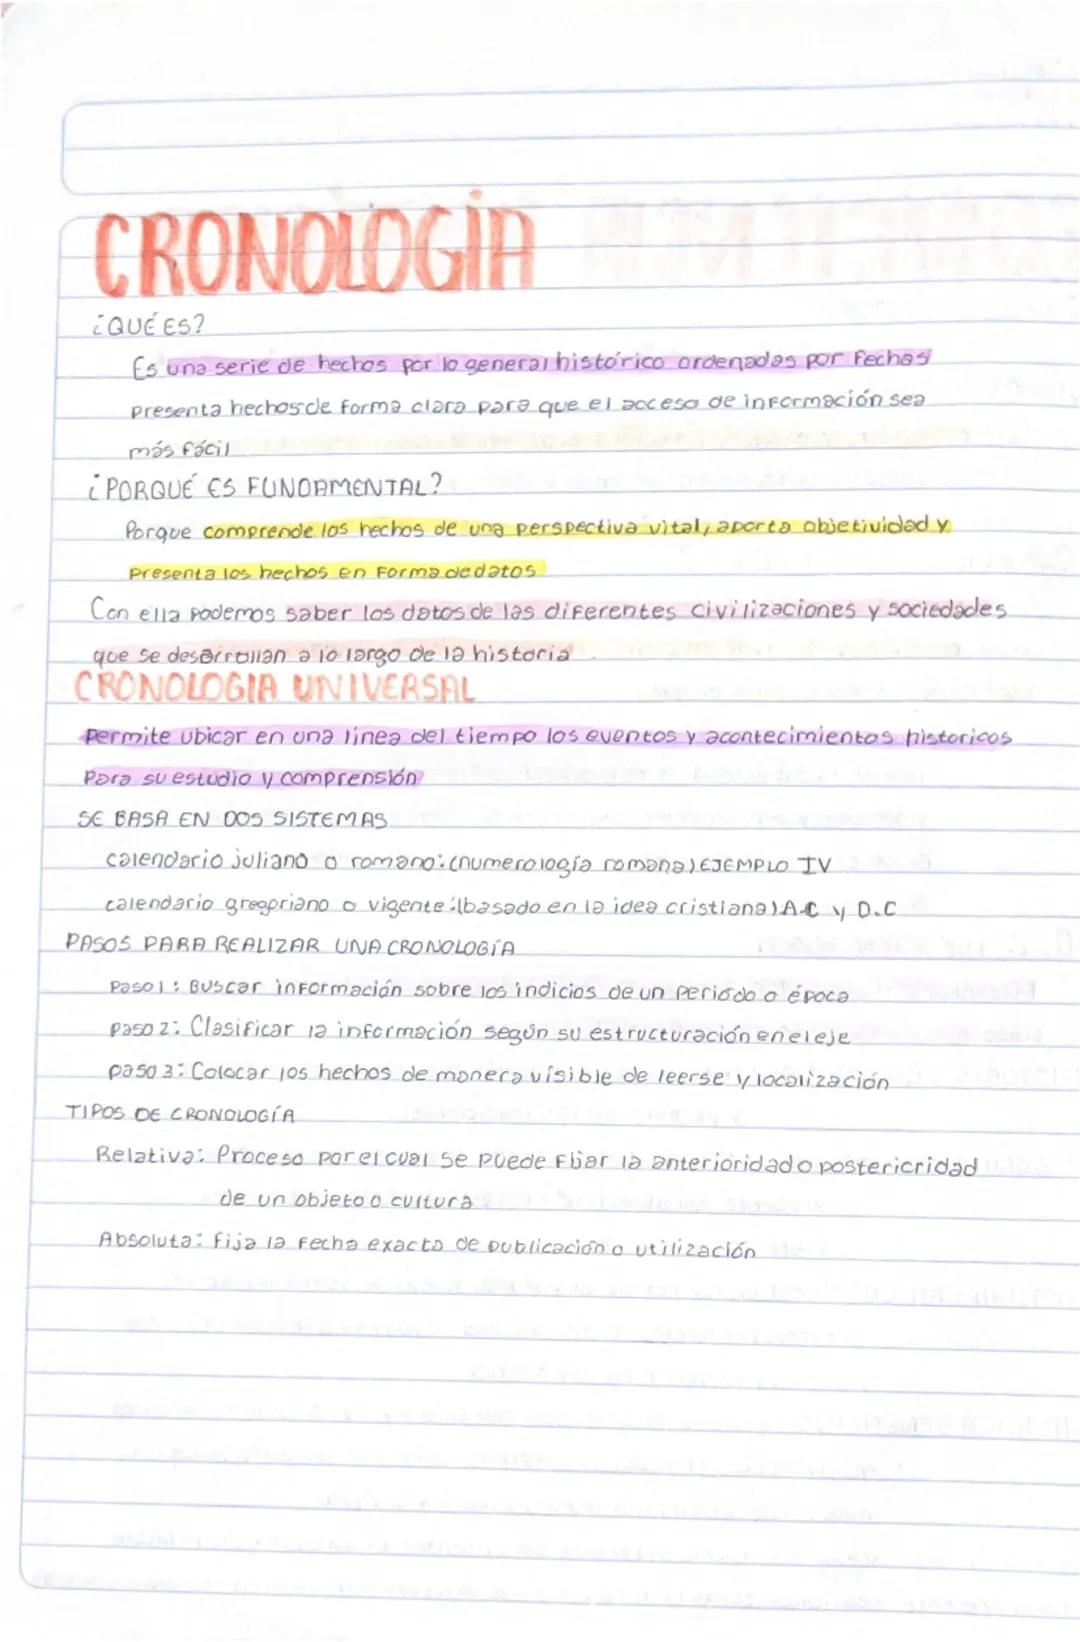 CRONOLOGÍA
¿QUÉ ES?
Es una serie de hechos por lo general histórico ordenadas por fechas
presenta hechos de forma clara para que el acceso de información sea
más fácil
¿PORQUÉ ES FUNDAMENTAL?
Porque comprende los hechos de una perspectiva vital, aporta objetividad y
presenta los hechos en forma de datos
Con ella podemos saber los datos de las diferentes civilizaciones y sociedades
que se desarrollan a lo largo de la historia
CRONOLOGIA UNIVERSAL
permite ubicar en una linea del tiempo los eventos y acontecimientos historicos
para su estudio y comprensión
SE BASA EN DOS SISTEMAS
calendario juliano o romano: (numerología romana) EJEMPLO IV
calendario gregoriano o vigente: (basado en la idea cristiana) A.C y D.C
PASOS PARA REALIZAR UNA CRONOLOGÍA
Paso 1: Buscar información sobre los indicios de un periódo o época
paso 2: Clasificar la información según su estructuración en el eje
paso 3: Colocar los hechos de manera visible de leerse y localización
TIPOS DE CRONOLOGÍA
Relativa: Proceso por el cual se puede fijar la anterioridad o posterioridad
de un objeto o cultura
Absoluta: fija la fecha exacta de publicación o utilización